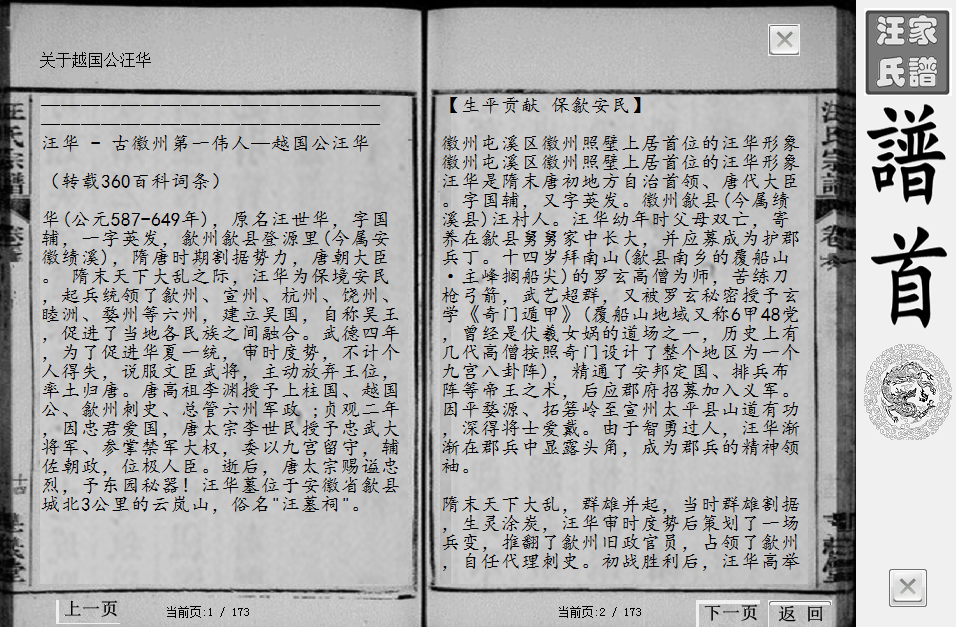 关于越国公汪华
汪华 - 古徽州第一伟人—越国公汪华
(转载360百科词条)
华(公元587-649年)，原名汪世华，字国
辅，一字英发，歙州歙县登源里(今属安
徽绩溪)，隋唐时期割据势力，唐朝大臣
。 隋末天下大乱之际，汪华为保境安民
，起兵统领了歙州、宣州、杭州、饶州、
睦洲、婺州等六州，建立吴国，自称吴王
，促进了当地各民族之间融合。武德四年
，为了促进华夏一统，审时度势，不计个
人得失，说服文臣武将，主动放弃王位，
率土归唐。唐高祖李渊授予上柱国、越国
公、歙州刺史、总管六州军政 ;贞观二年
，因忠君爱国，唐太宗李世民授予忠武大
将军、参掌禁军大权，委以九宫留守，辅
佐朝政，位极人臣。逝后，唐太宗赐谥忠
烈，予东园秘器！汪华墓位于安徽省歙县
城北3公里的云岚山，俗名"汪墓祠"。
【生平贡献 保歙安民】
徽州屯溪区徽州照壁上居首位的汪华形象
徽州屯溪区徽州照壁上居首位的汪华形象
汪华是隋末唐初地方自治首领、唐代大臣
。字国辅，又字英发。徽州歙县(今属绩
溪县)汪村人。汪华幼年时父母双亡，寄
养在歙县舅舅家中长大，并应募成为护郡
兵丁。十四岁拜南山(歙县南乡的覆船山
·主峰搁船尖)的罗玄高僧为师，苦练刀
枪弓箭，武艺超群，又被罗玄秘密授予玄
学《奇门遁甲》(覆船山地域又称6甲48党
，曾经是伏羲女娲的道场之一，历史上有
几代高僧按照奇门设计了整个地区为一个
九宫八卦阵)，精通了安邦定国、排兵布
阵等帝王之术，后应郡府招募加入义军。
因平婺源、拓箬岭至宣州太平县山道有功
，深得将士爱戴。由于智勇过人，汪华渐
渐在郡兵中显露头角，成为郡兵的精神领
袖。
隋末天下大乱，群雄并起，当时群雄割据
，生灵涂炭，汪华审时度势后策划了一场
兵变，推翻了歙州旧政官员，占领了歙州
，自任代理刺史。初战胜利后，汪华高举
上一页
当前页:1 / 173
当前页:2 / 173
下一页
返 回
汪家
氏譜
譜
首